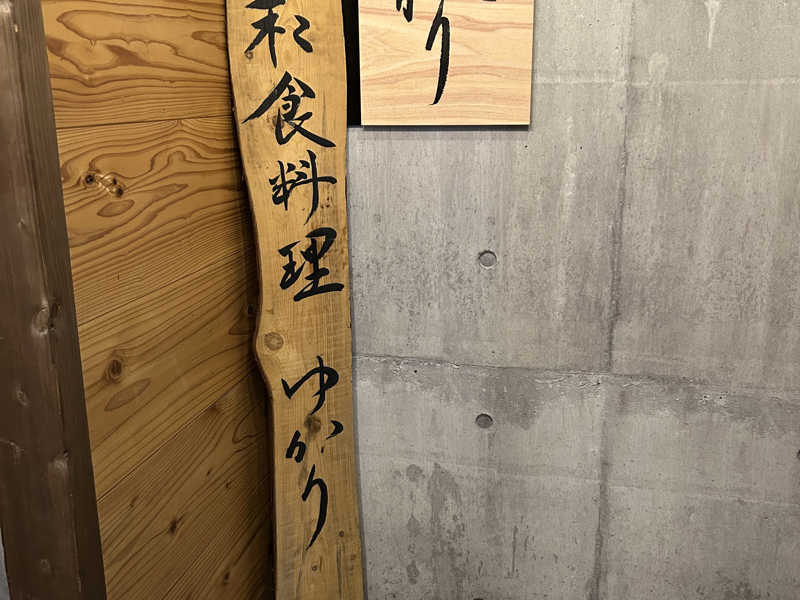 かり
和食料理 ゆかり